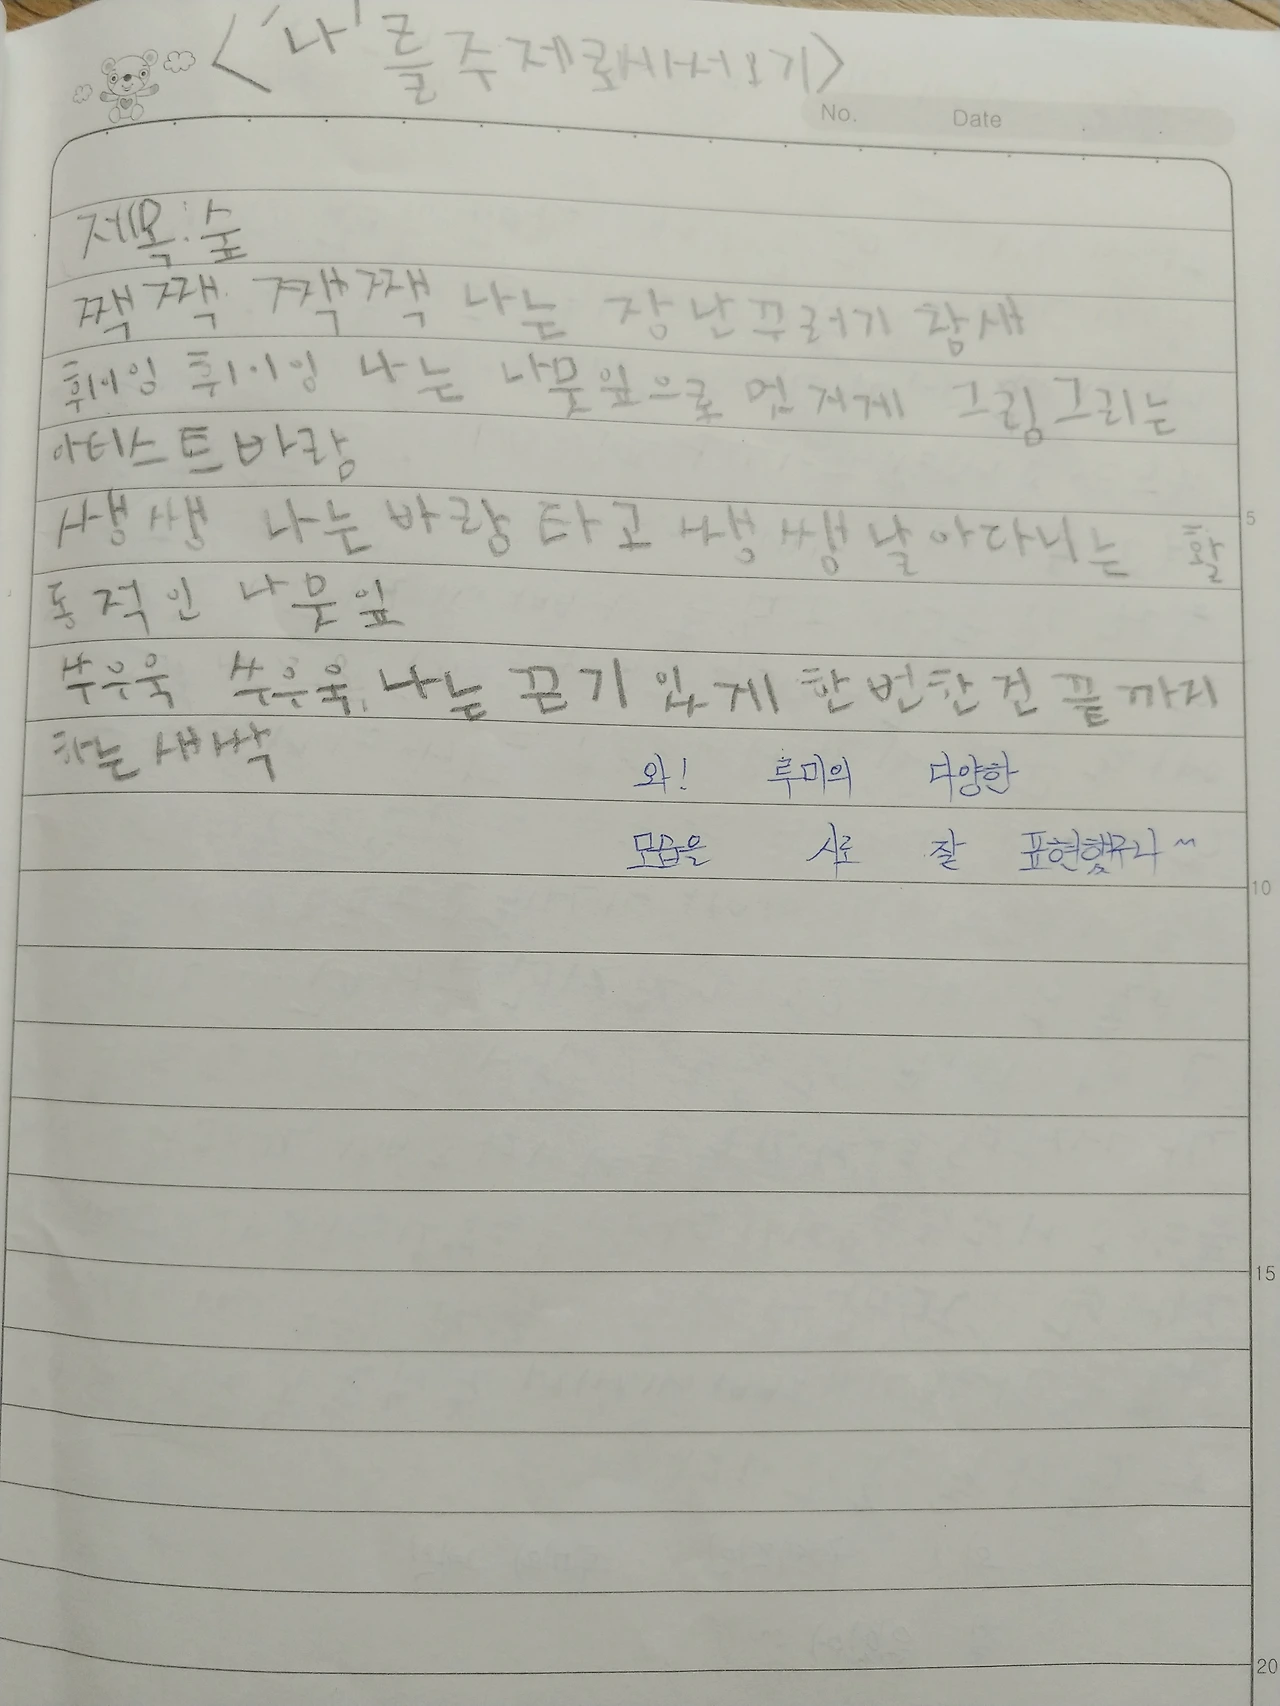 <'나'를 주제로 시 써 오기>
No. Date
제목: 숲
짹짹 짹짹 나는 장난꾸러기 참새
휘이잉 휘이잉 나는 나뭇잎으로 멋지게 그림그리는
아티스트 바람
쌩쌩 나는 바람 타고 쌩쌩 날아다니는 활
동적인 나뭇잎
쑤우욱 쑤우욱, 나는 끈기 있게 한번한건 끝까지
하는 새싹
와! 루미의 다양한
모습을 시로 잘 표현했구나~
5
10
15
20